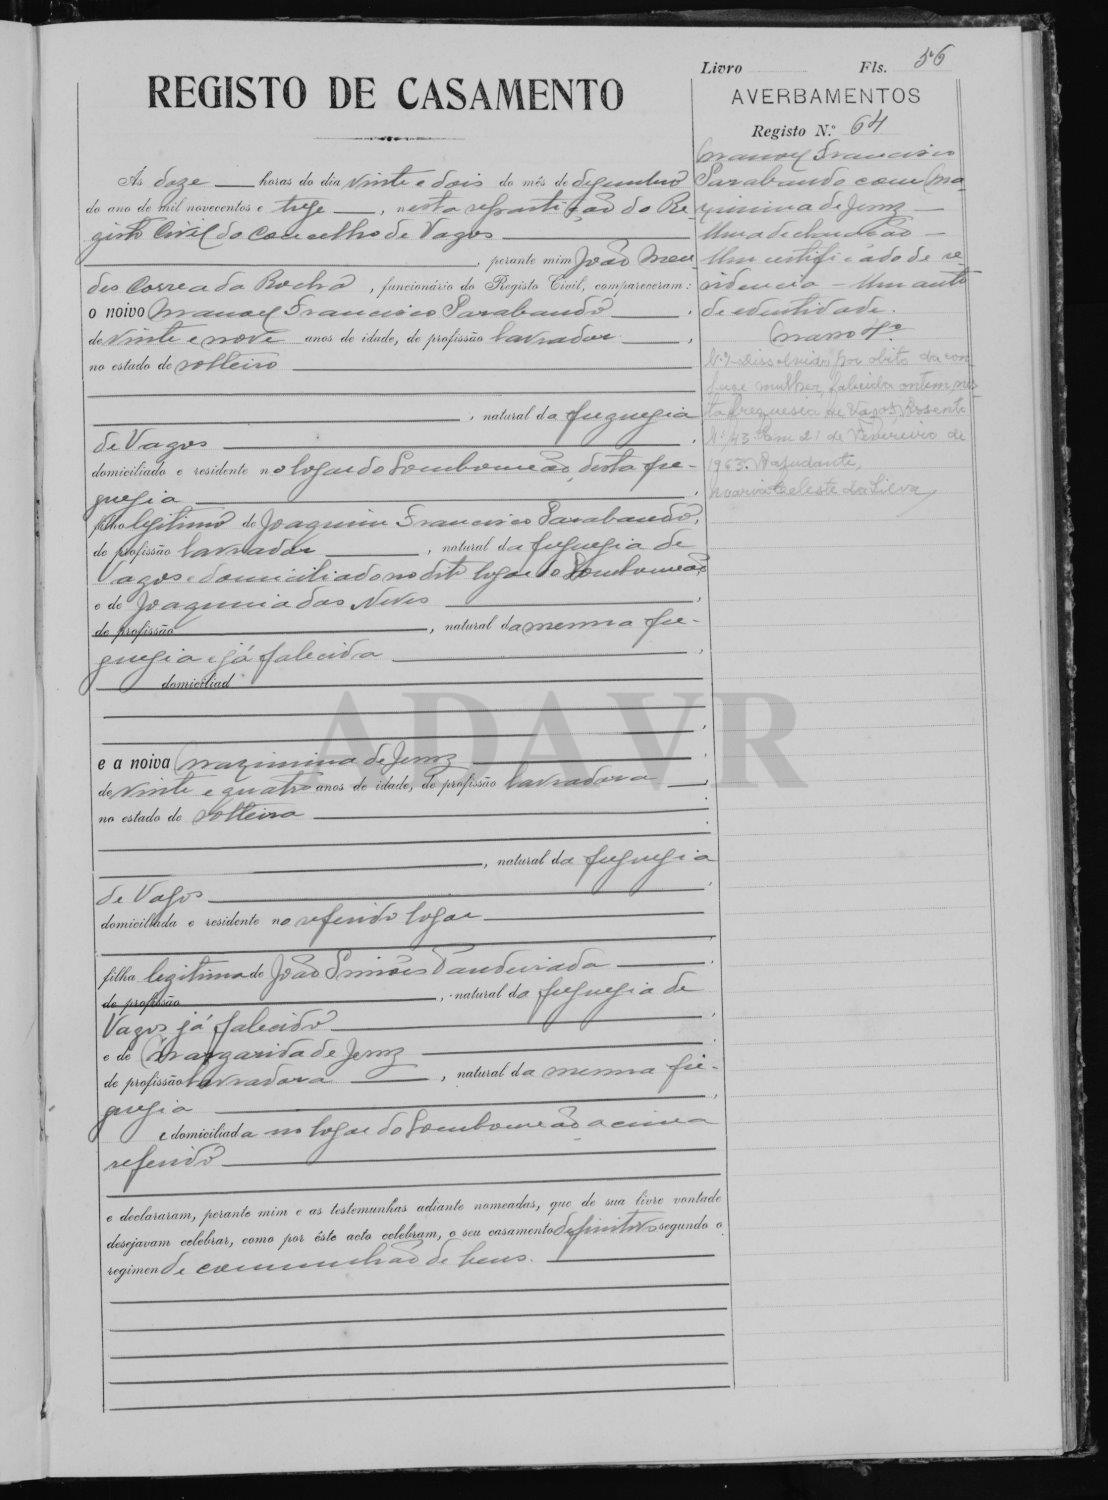 Livro Fls. 56
REGISTO DE CASAMENTO
AVERBAMENTOS
Registo N.º 64
Manoel Francisco
Parabando com Ma-
ximina de Jesus —
Uma declaração —
Um certificado de re-
sidencia — Um auto
de identidade.
N.º 1 - Dissolvido por obito da con
juge mulher, falecida ontem, nes
ta freguesia de Vagos. Assento
N.º 43. Em 21 de Fevereiro de
1963. O ajudante,
Maria Celeste da Silva
Ás doze horas do dia vinte e dois do mês de dezembro
do ano de mil novecentos e treze, nesta repartição do Re
gisto Civil do concelho de Vagos
, perante mim João Men
des Correa da Rocha, funcionário do Registo Civil, compareceram:
o noivo Manoel Francisco Parabando,
de vinte e nove anos de idade, de profissão lavrador,
no estado de solteiro
, natural da freguezia
de Vagos
domiciliado e residente no logar do Lombomeão, desta fre-
guezia
filho legitimo de Joaquim Francisco Parabando,
de profissão lavrador, natural da freguezia de
Vagos e domiciliado no dito logar do Lombomeão
e de Joaquina das Neves
de profissão, natural da mesma fre-
guezia e já falecida
domiciliad
e a noiva Maximina de Jesus
de vinte e quatro anos de idade, de profissão lavradora,
no estado de solteira
, natural da freguezia
de Vagos
domiciliada e residente no referido logar
filha legitima de João Simões Pandeirada
de profissão, natural da freguezia de
Vagos já falecido
e de Margarida de Jesus
de profissão lavradora, natural da mesma fre-
guezia
e domiciliada no logar do Lombomeão acima
referido
e declararam, perante mim e as testemunhas adiante nomeadas, que de sua livre vontade
desejavam celebrar, como por êste acto celebram, o seu casamento definitivo segundo o
regimen de communhão de bens.
ADAVR